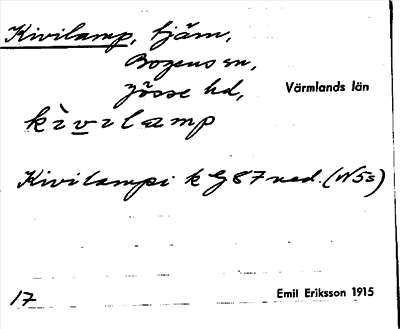 Kivilamp, tjärn,
Bogens sn,
Jösse hd,
Värmlands län
kìvilamp
Kivilampi k G 87 ned. (N5s)
17
Emil Eriksson 1915